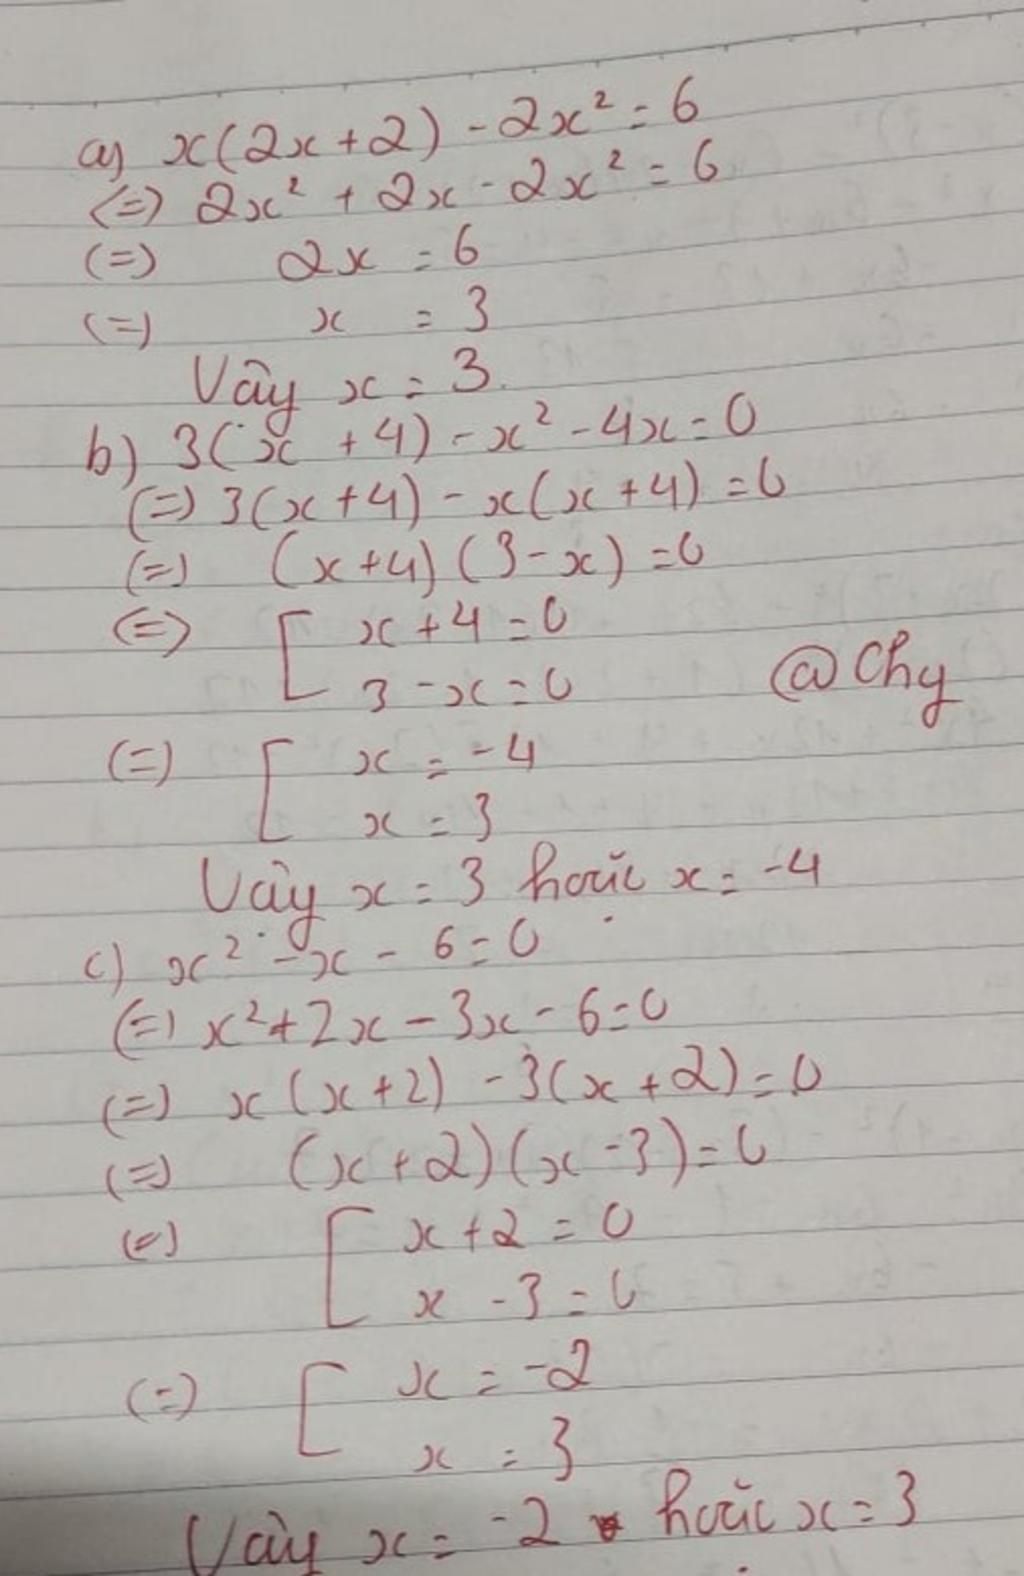 a) x(2x+2) - 2x² = 6
(=) 2x² + 2x - 2x² = 6
(=) 2x = 6
(=) x = 3
Vậy x = 3.
b) 3(x + 4) - x² - 4x = 0
(=) 3(x+4) - x(x+4) = 0
(=) (x+4)(3-x) = 0
(=) [ x+4 = 0
3 - x = 0
@Chy
(=) [ x = -4
x = 3
Vậy x = 3 hoặc x = -4
c) x² - x - 6 = 0
(=) x² + 2x - 3x - 6 = 0
(=) x(x+2) - 3(x+2) = 0
(=) (x+2)(x-3) = 0
(=) [ x+2 = 0
x - 3 = 0
(=) [ x = -2
x = 3
Vậy x = -2 hoặc x = 3